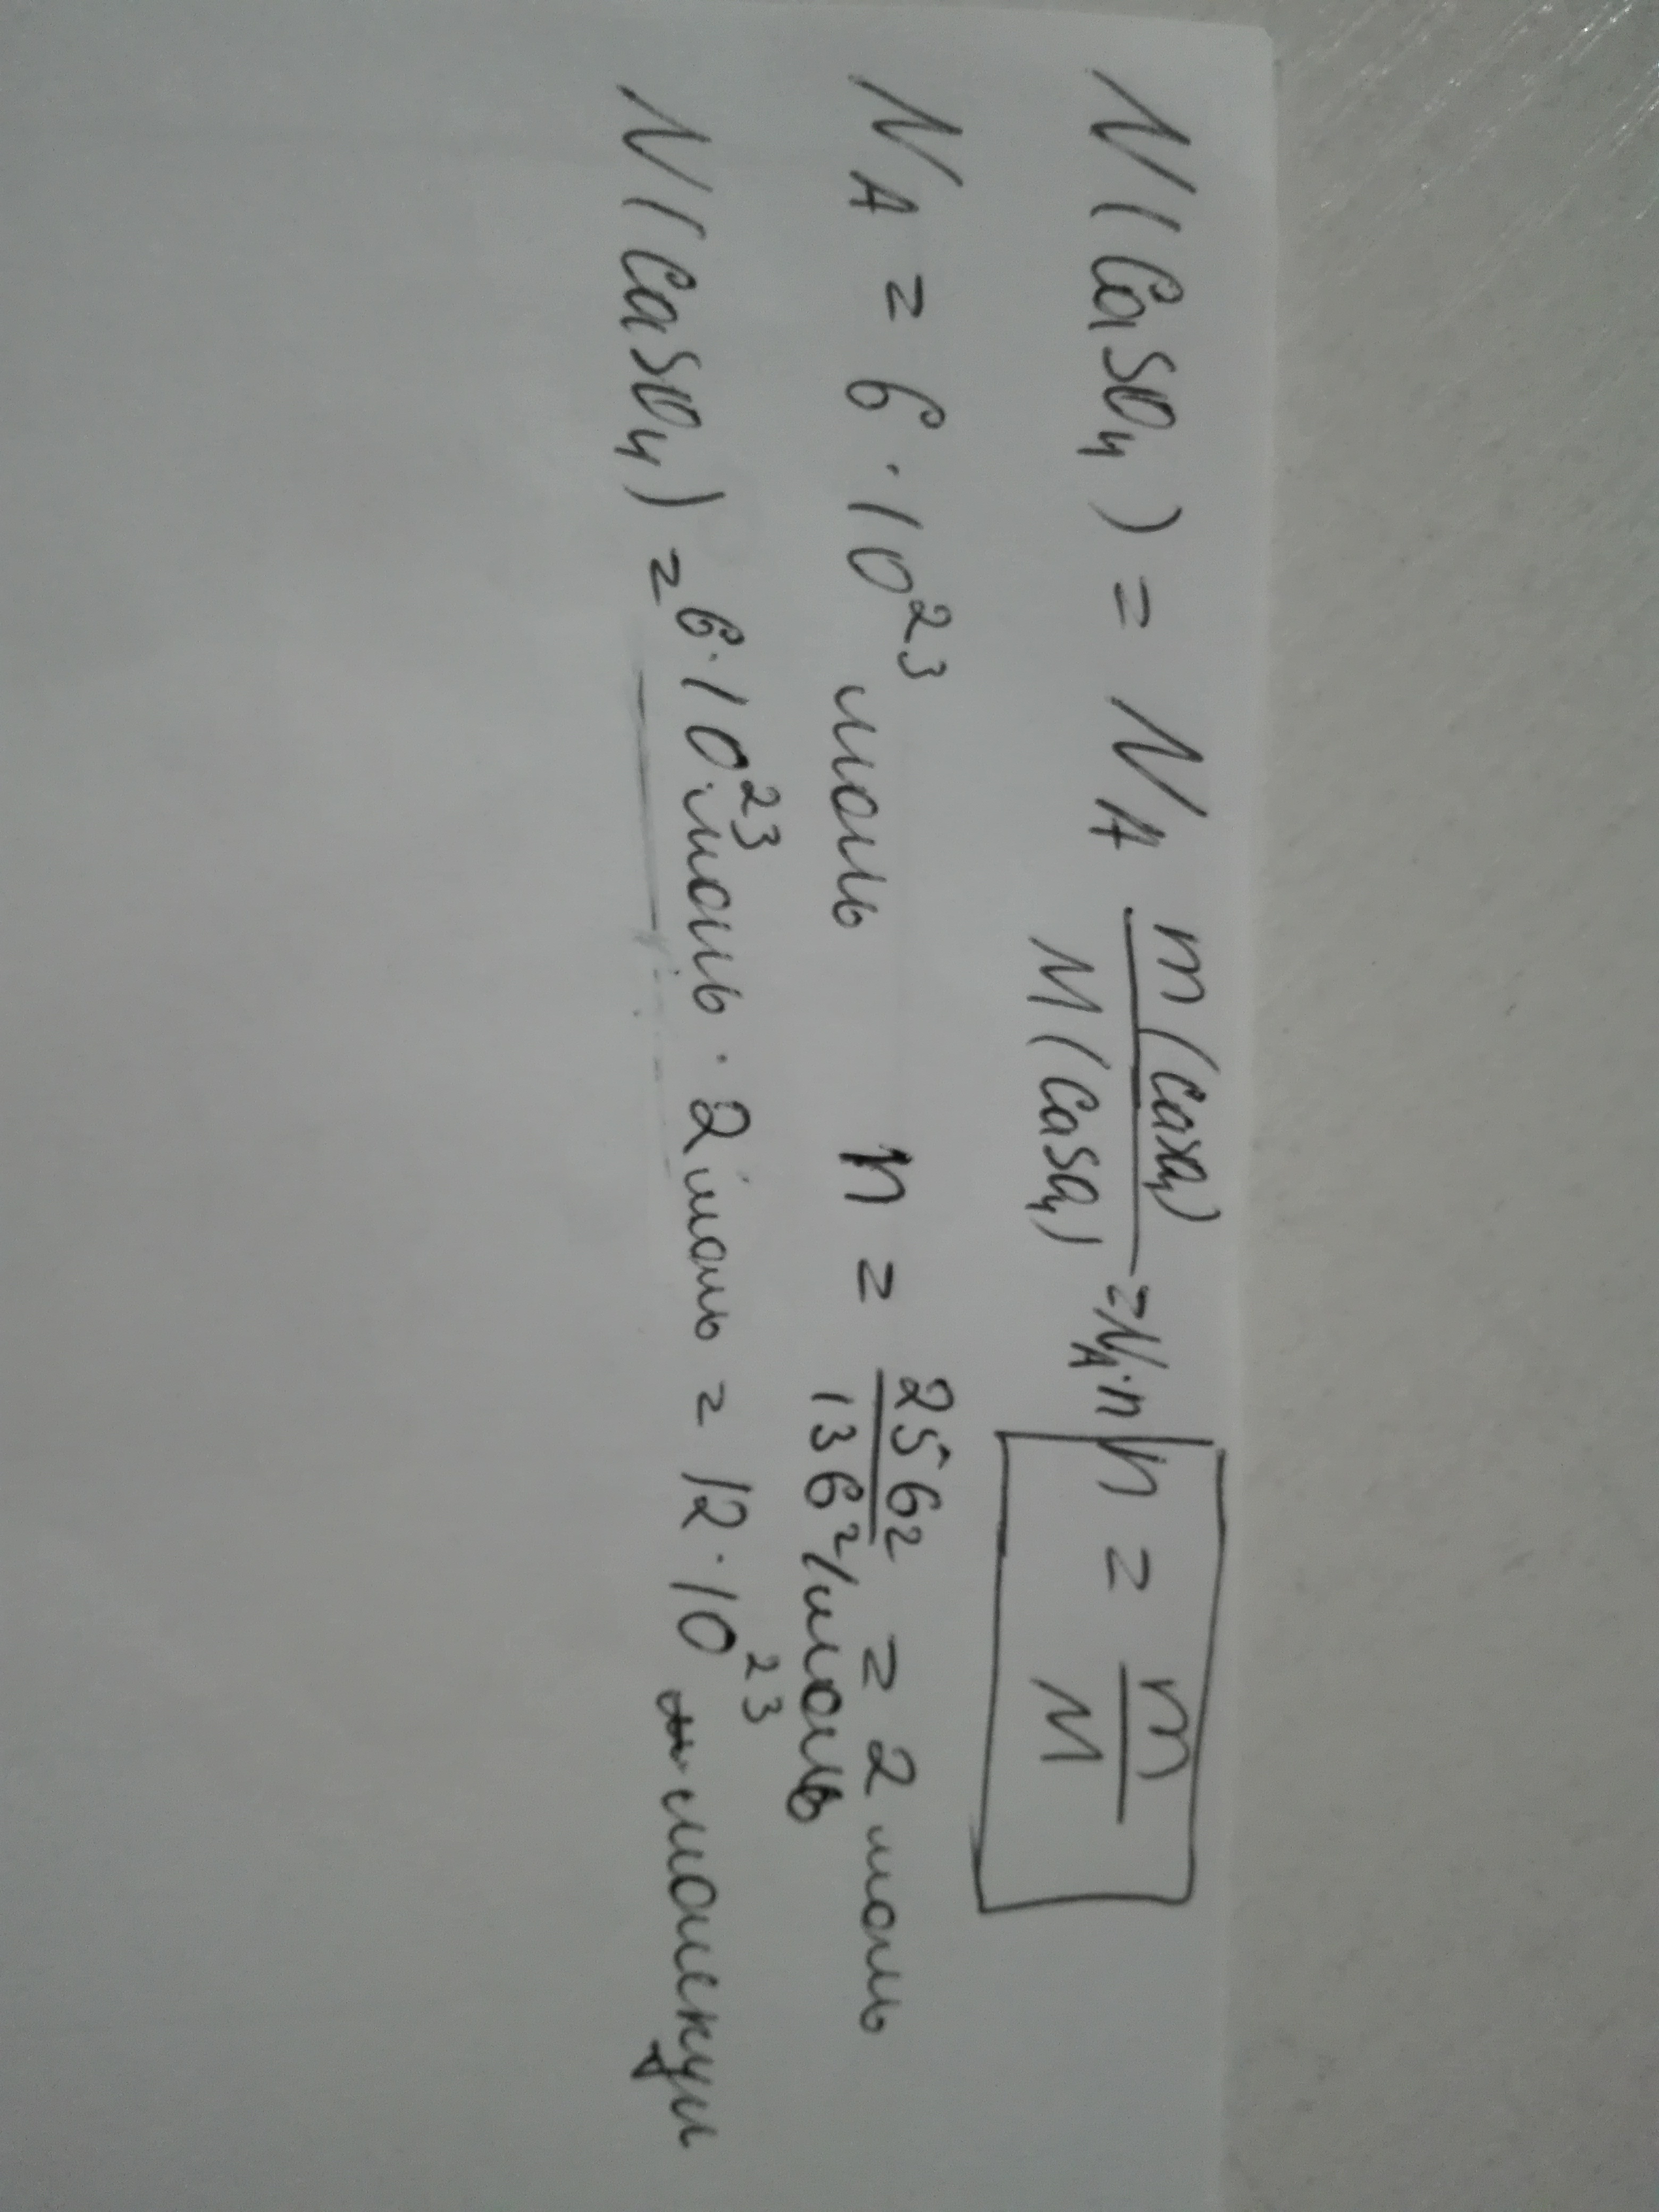 N(CaSO₄) = N_A m(CaSO₄)/M(CaSO₄) = N_A · n | n = m/M
N_A = 6 · 10²³ моль n = 256г/136г/моль = 2 моль
N(CaSO₄) = 6 · 10²³ моль · 2 моль = 12 · 10²³ молекул